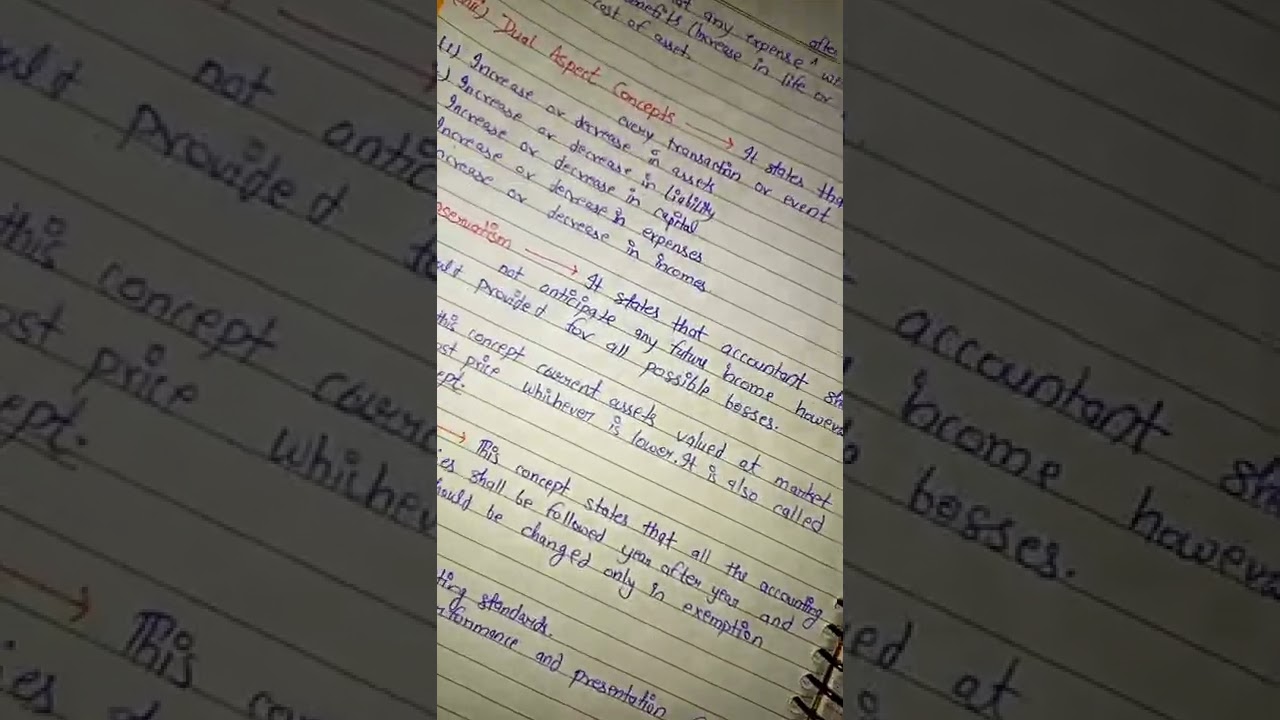 any expense after
benefits (Increase in life or
cost of asset.
Dual Aspect Concepts → It states tha
every transaction or event
(i) Increase or decrease in assets
Increase or decrease in liability
Increase or decrease in capital
Increase or decrease in expenses
ncrease or decrease in incomes
nservatism → It states that accountant sh
not anticipate any future income howeve
uld provided for all possible bosses.
this concept current assets valued at market
ost price whichever is lower. It is also called
ept.
→ This concept states that all the accounting
ies shall be followed year after year and
hould be changed only in exemption
ting standards.
rformance and presentation